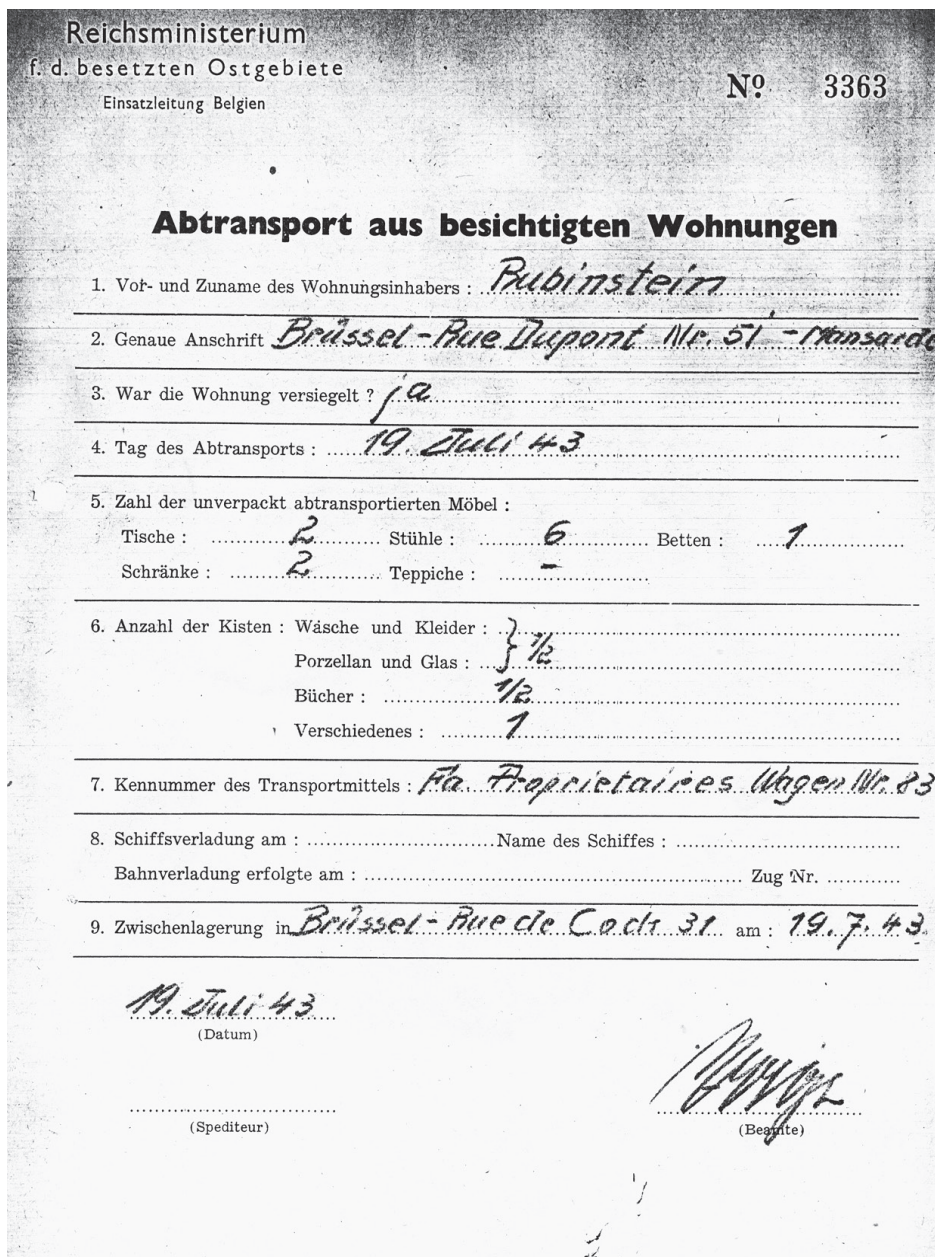 Reichsministerium
f. d. besetzten Ostgebiete
Einsatzleitung Belgien
Nº 3363
Abtransport aus besichtigten Wohnungen
1. Vor- und Zuname des Wohnungsinhabers : Rubinstein
2. Genaue Anschrift Brüssel - Rue Dupont Nr. 51 - Mansarde
3. War die Wohnung versiegelt ? ja
4. Tag des Abtransports : 19. Juli 43
5. Zahl der unverpackt abtransportierten Möbel :
Tische : 2 Stühle : 6 Betten : 1
Schränke : 2 Teppiche : -
6. Anzahl der Kisten : Wäsche und Kleider :
Porzellan und Glas : } 1/2
Bücher : 1/2
Verschiedenes : 1
7. Kennummer des Transportmittels : Fa. Proprietaires Wagen Nr. 83
8. Schiffsverladung am : Name des Schiffes :
Bahnverladung erfolgte am : Zug Nr.
9. Zwischenlagerung in Brüssel - Rue de Cock 31 am : 19.7.43
19. Juli 43
(Datum)
(Spediteur) (Beamte)